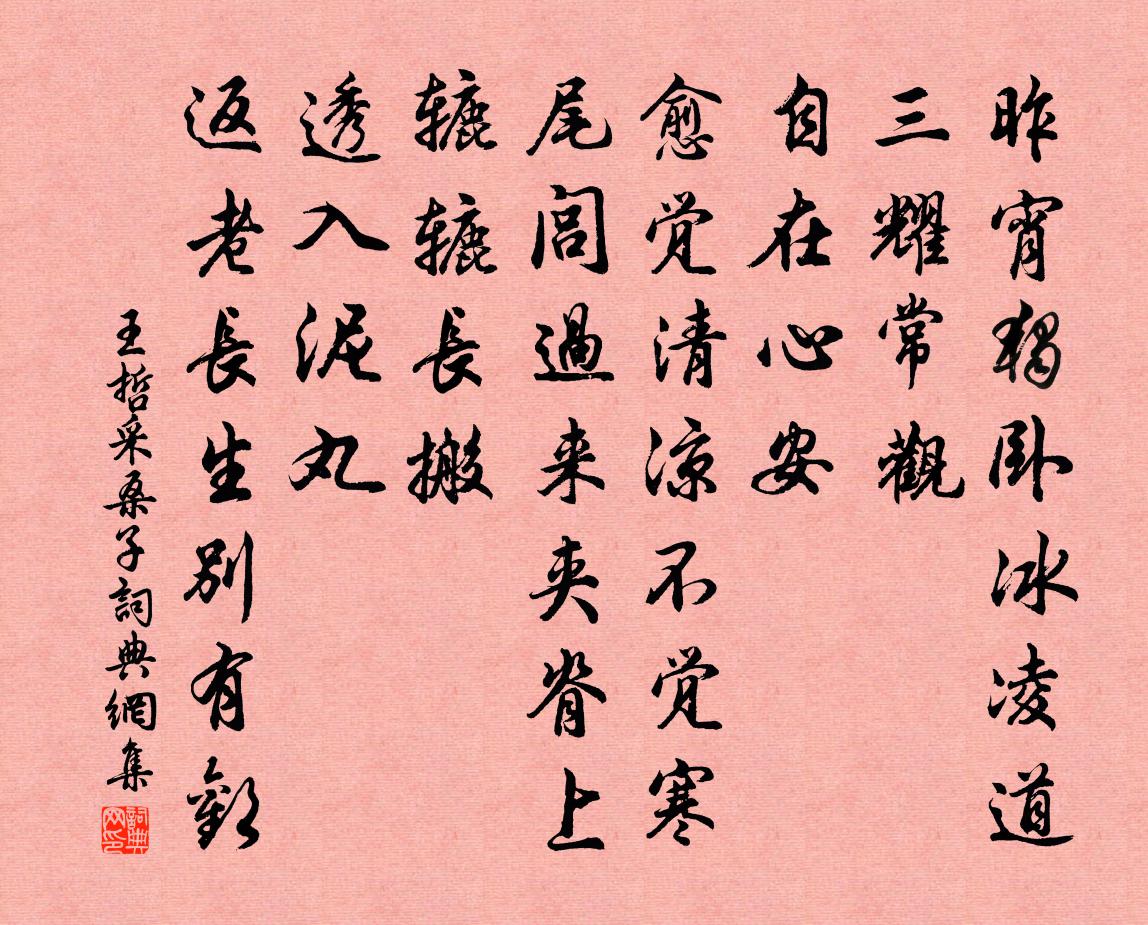 昨宵獨卧冰凌道
三耀常觀
自在心安
愈觉清涼不觉寒
尾閭過来夹脊上
辘辘長搬
透入泥丸
返老長生别有歡
王哲采桑子詞典網集
詞典网印